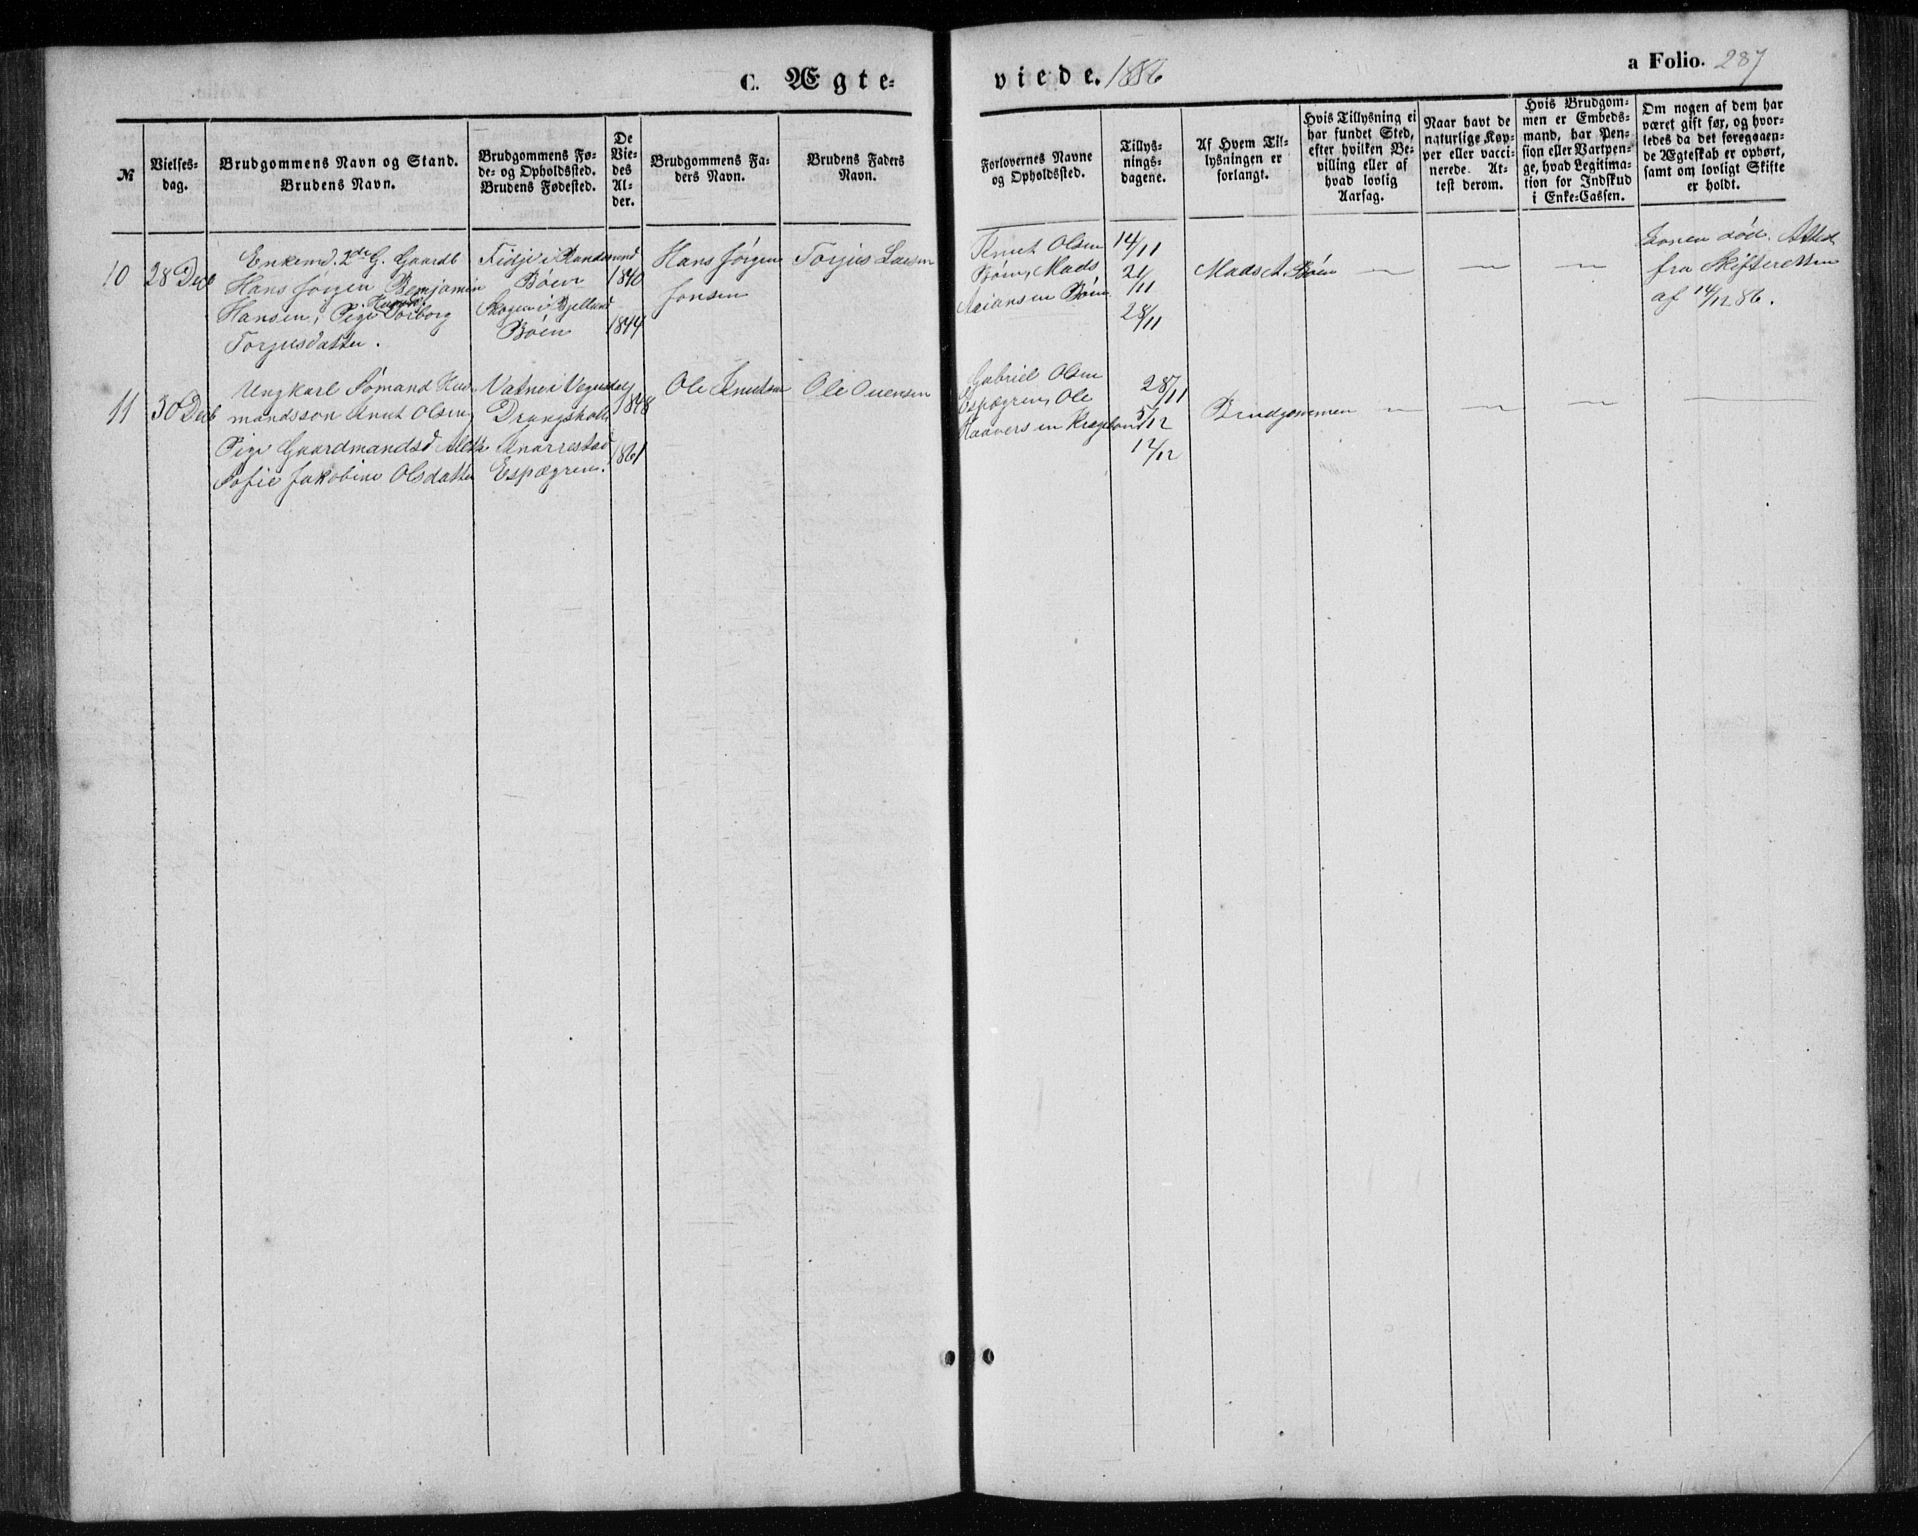 C. Ægte-
viede. 1886
a Folio. 287
№
Vielses-
dag.
Brudgommens Navn og Stand.
Brudens Navn.
Brudgommens Fø-
de- og Opholdssted.
Brudens Fødested.
De
Vie-
des
Al-
der.
Brudgommens Fa-
ders Navn.
Brudens Faders
Navn.
Forlovernes Navne
og Opholdssted.
Tillys-
nings-
dagene.
Af Hvem Til-
lysningen er
forlangt.
Hvis Tillysning ei
har fundet Sted,
efter hvilken Be-
villing eller af
hvad lovlig
Aarsag.
Naar havt de
naturlige Kop-
per eller vacci-
nerede. At-
test derom.
Hvis Brudgom-
men er Embeds-
mand, har Pen-
sion eller Vartpen-
ge, hvad Legitima-
tion for Indskud
i Enke-Cassen.
Om nogen af dem har
været gift før, og hvor-
ledes da det foregaaen-
de Ægteskab er ophørt,
samt om lovligt Skifte
er holdt.
10
28 Decb
Enkemd. 2de G. Gaardb
Hans Jørgen Bemjamin
Hansen, Pige Torborg
Torjusdatter.
Fidje i Randesund
Bøen
Skogen i Bjelland
Bøen
1840
1844
Hans Jørgen
Jonsen
Torjus Larsen
Knut Olsen
Bøen, Mads
Asiansen Bøen
14/11
21/11
28/11
Mads A. Bøen
—
—
—
Konen død. Attest
fra Skifteretten
af 14/12 86.
11
30 Decb
Ungkarl Sømand Hus-
mandsson Knut Olsen,
Pige Gaardmandsd
Sofie Jakobine Olsdatter
Vatne i Vegusdal
Drangsholt
Knarrestad
Espegren.
1848
1861
Ole Knutsen
Ole Ouensen
Gabriel Olsen
Espegren, Ole
Haaversen
28/11
5/12
12/12
Brudgommen
—
—
—
—